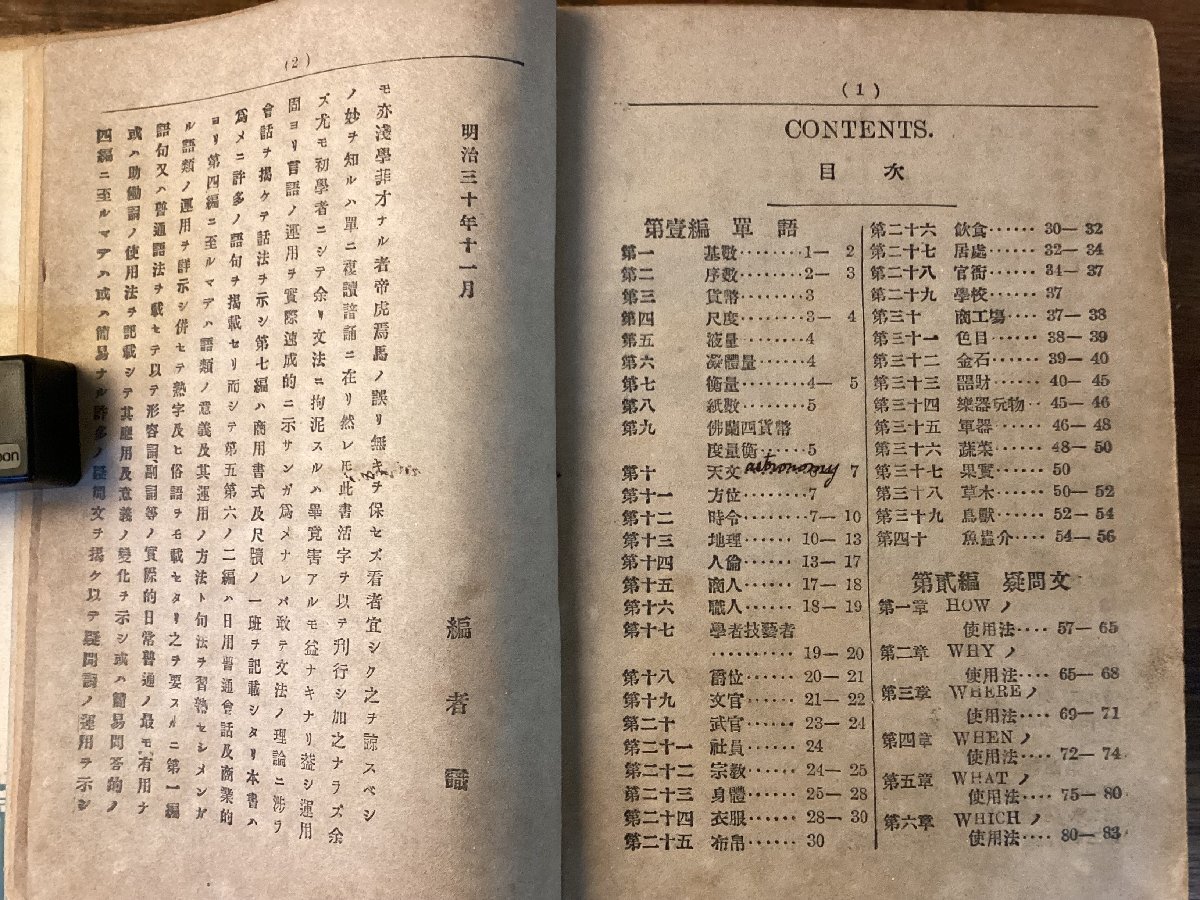 (2)
四編ニ至ルマデハ或ハ簡易ナル許多ノ疑問文ヲ揭ケ以テ疑問詞ノ運用ヲ示シ
或ハ助働詞ノ使用法ヲ記載シテ其應用及意義ノ變化ヲ示シ或ハ簡易問答的ノ
語句又ハ普通語法ヲ載セテ以テ形容詞、副詞等ノ實際的日常普通ノ最モ有用ナ
ル語類ノ運用ヲ詳示シ併セテ熟字及ヒ俗語ヲモ載セタリ之ヲ要スルニ第一編
ヨリ第四編ニ至ルマデハ語類ノ意義及其運用ノ方法ト句法ヲ習熟セシメンガ
爲メニ許多ノ語句ヲ揭載セリ而シテ第五第六ノ二編ハ日用普通會話及商業的
會話ヲ揭ケテ話法ヲ示シ第七編ハ商用書式及尺牘ノ一班ヲ記載シタリ本書ハ
固ヨリ言語ノ運用ヲ實際速成的ニ示サンガ爲メナレバ敢テ文法ノ理論ニ涉ラ
ズ尤モ初學者ニシテ余リ文法ニ拘泥スルハ畢竟害アルモ益ナキナリ蓋シ運用
ノ妙ヲ知ルハ單ニ復讀諳誦ニ在リ然レモ此書活字ヲ以テ刊行シ加之ナラズ余
モ亦淺學菲才ナル者帝虎焉馬ノ誤リ無キヲ保セズ看者宜シク之ヲ諒スベシ
明治三十年十一月
編者識
(1)
CONTENTS.
目次
第壹編 單語
第一 基數········1— 2
第二 序數········2— 3
第三 貨幣········3
第四 尺度········3— 4
第五 液量········4
第六 凝體量······4
第七 衡量········4— 5
第八 紙數········5
第九 佛蘭西貨幣
度量衡····5
第十 天文 astronomy 7
第十一 方位········7
第十二 時令········7— 10
第十三 地理······10— 13
第十四 人倫······13— 17
第十五 商人······17— 18
第十六 職人······18— 19
第十七 學者技藝者
··········19— 20
第十八 爵位······20— 21
第十九 文官······21— 22
第二十 武官······23— 24
第二十一 社員······24
第二十二 宗教······24— 25
第二十三 身體······25— 28
第二十四 衣服······28— 30
第二十五 布帛······30
第二十六 飲食······30— 32
第二十七 居處······32— 34
第二十八 官衙······34— 37
第二十九 學校······37
第三十 商工場····37— 38
第三十一 色目······38— 39
第三十二 金石······39— 40
第三十三 器財······40— 45
第三十四 樂器玩物··45— 46
第三十五 軍器······46— 48
第三十六 蔬菜······48— 50
第三十七 果實······50
第三十八 草木······50— 52
第三十九 鳥獸······52— 54
第四十 魚蟲介····54— 56
第貳編 疑問文
第一章 HOW ノ
使用法····57— 65
第二章 WHY ノ
使用法····65— 68
第三章 WHERE ノ
使用法····69— 71
第四章 WHEN ノ
使用法····72— 74
第五章 WHAT ノ
使用法····75— 80
第六章 WHICH ノ
使用法····80— 83